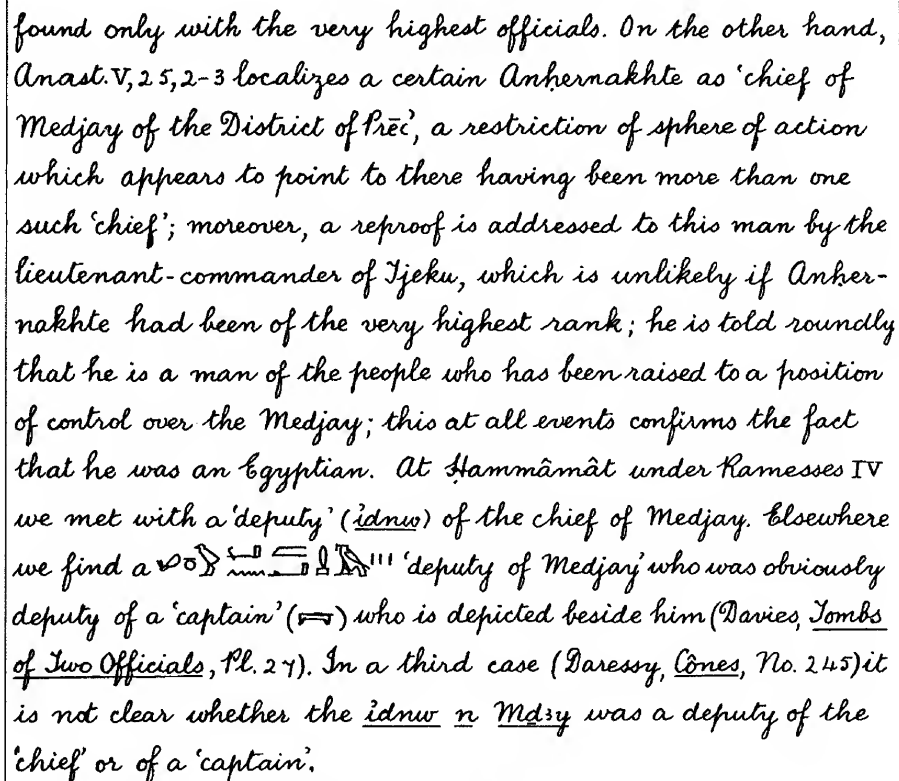 found only with the very highest officials. On the other hand,
Anast. V, 25, 2-3 localizes a certain Anḥernakhte as 'chief of
Medjay of the District of Prēʿ', a restriction of sphere of action
which appears to point to there having been more than one
such 'chief'; moreover, a reproof is addressed to this man by the
lieutenant-commander of Tjeku, which is unlikely if Anḥer-
nakhte had been of the very highest rank; he is told roundly
that he is a man of the people who has been raised to a position
of control over the Medjay; this at all events confirms the fact
that he was an Egyptian. At Ḥammâmât under Ramesses IV
we met with a 'deputy' (idnw) of the chief of Medjay. Elsewhere
we find a 'deputy of Medjay' who was obviously
deputy of a 'captain' () who is depicted beside him (Davies, Tombs
of Two Officials, Pl. 27). In a third case (Daressy, Cônes, No. 245) it
is not clear whether the idnw n Mdꜣy was a deputy of the
'chief' or of a 'captain'.